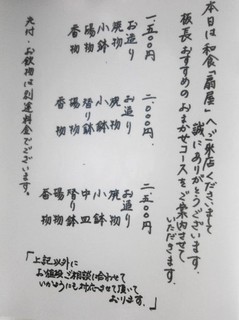 本日は和食「扇屋」へご来店くださいまして
誠にありがとうございます。
板長おすすめのおまかせコースをご案内させて
いただきます。
一、五〇〇円
お造り
焼物
小鉢
揚物
香物
二、〇〇〇円
お造り
焼物
小鉢
替り鉢
揚物
香物
二、五〇〇円
お造り
焼物
小鉢
中皿
替り鉢
揚物
香物
「上記以外に
お値段ご相談に合わせて
いかようにも対応させて頂いて
おります。」
先付・お飲物は別途料金でございます。